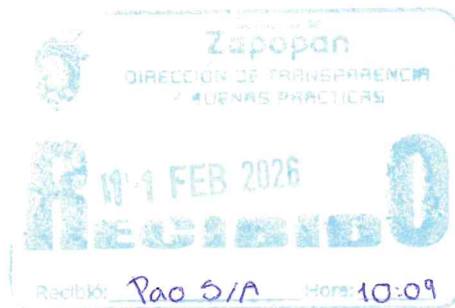 Zapopan
DIRECCIÓN DE TRANSPARENCIA
Y BUENAS PRÁCTICAS
1 FEB 2026
RECIBIDO
Recibió: Pao S/A Hora: 10:09